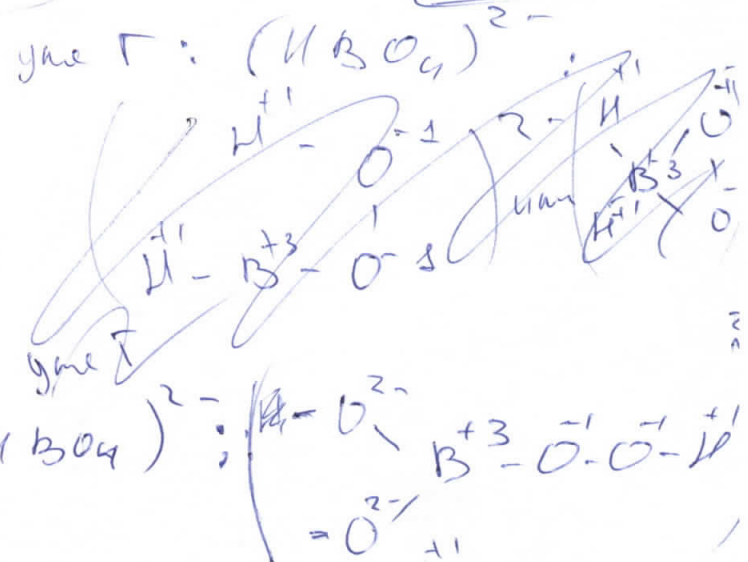 уже Г : (HBO₄)²⁻ :
H⁺¹ - O⁻¹
H⁺¹ - B⁺³ - O⁻¹
2-
или
H⁺¹
B⁺³
H⁺¹
O⁻
уже Г
(BO₄)²⁻ :
- O²⁻
B⁺³ - O⁻¹ - O⁻¹ - H⁺¹
- O²⁻
+1